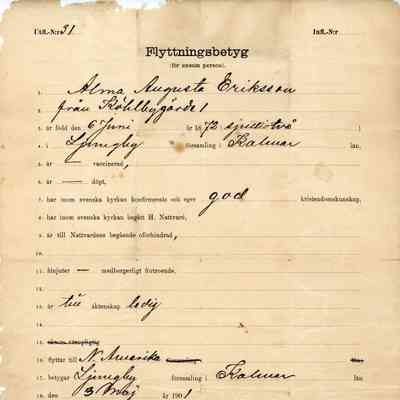 Utfl.-N:r 31 Infl.-N:r
Flyttningsbetyg
(för ensam person).
1. Alma Augusta Eriksson
2. från Köhlbygärde 1
3. är född den 6 Juni år 1872 sjuttiotvå
4. i Ljungby församling i Kalmar län,
5. är — vaccinerad,
6. är — döpt,
7. har inom svenska kyrkan konfirmerats och eger god kristendomskunskap,
8. har inom svenska kyrkan begått H. Nattvard,
9. är till Nattvardens begående oförhindrad,
10.
11. åtnjuter — medborgerligt förtroende,
12.
13. är till äktenskap ledig
14.
15.
16. flyttar till N. Amerika församling i län
17. betygar Ljungby församling i Kalmar län
18. den 3 Maj år 1901